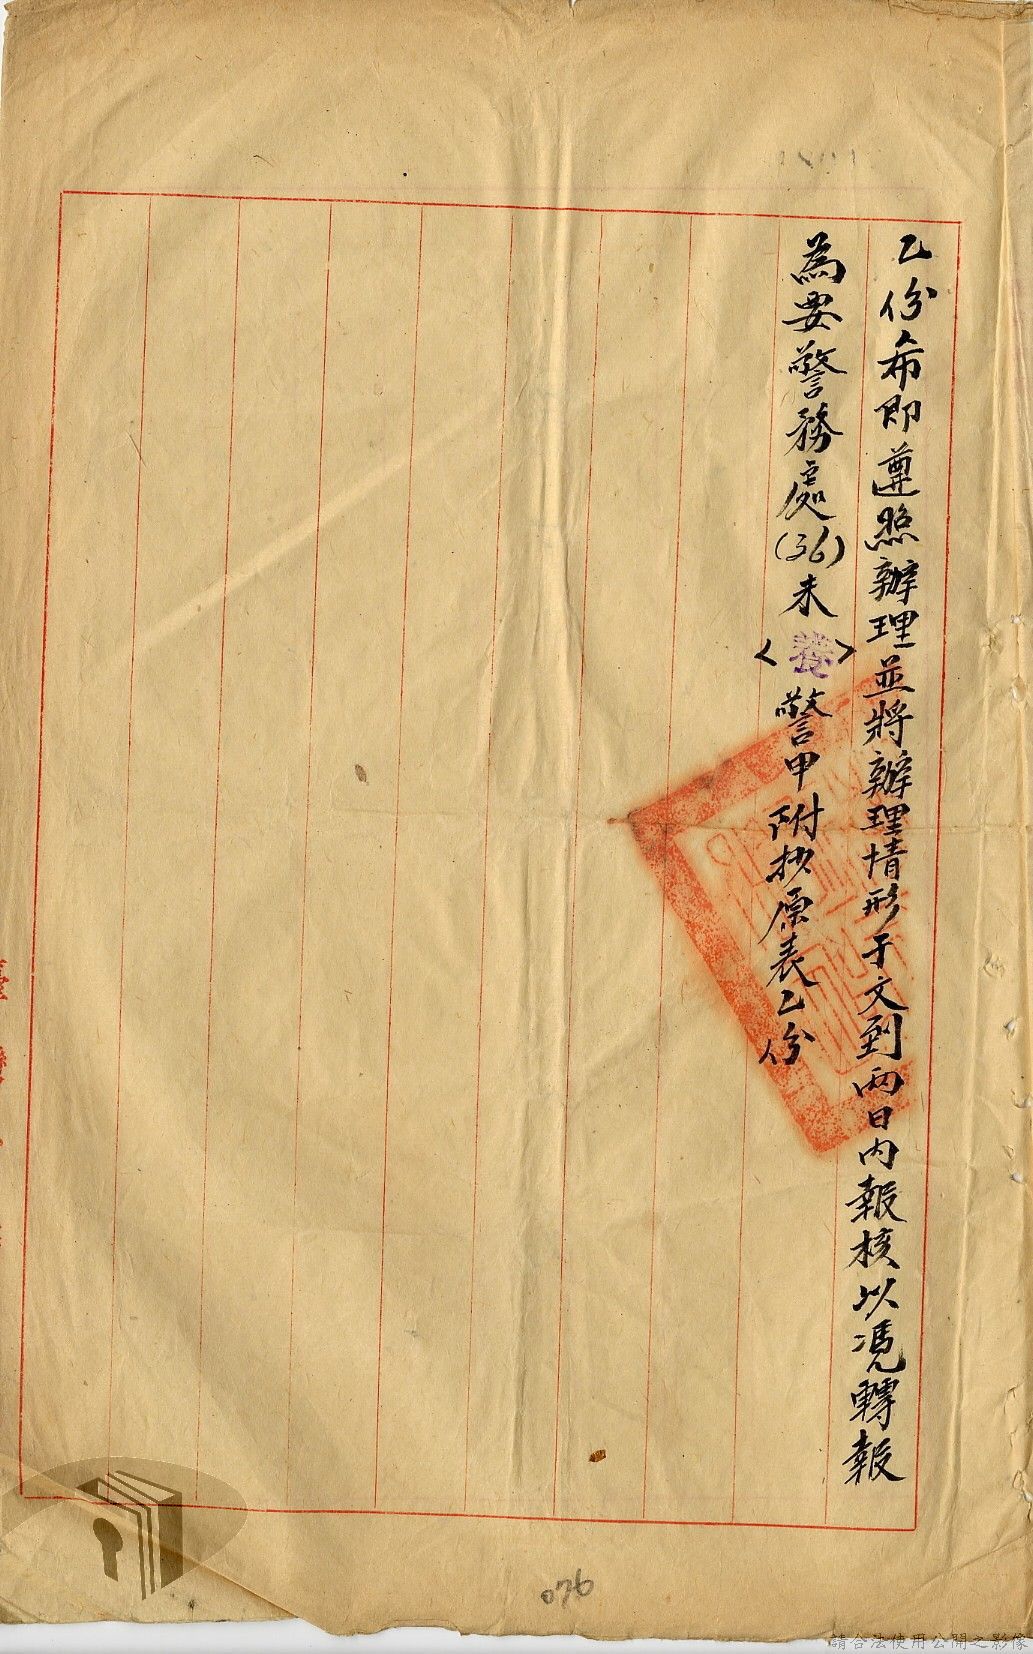 乙份希即遵照辦理並將辦理情形于文到兩日內報核以憑轉報
為要警務處(36)未<養>警甲附抄原表乙份
076
請合法使用公開之影像